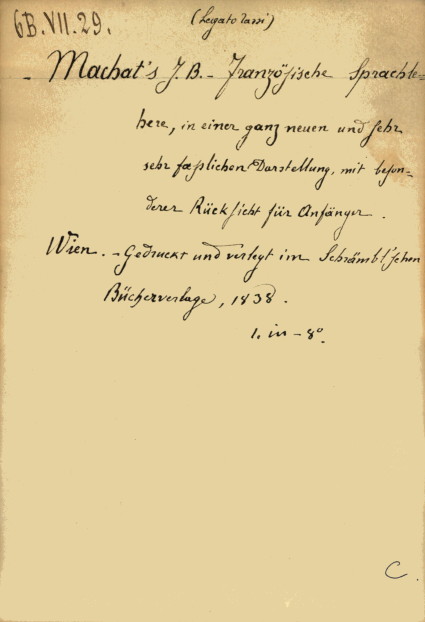 6B.VII.29.
(Legato Tassi)
- Machat's J. B. - Französische Sprachle-
here, in einer ganz neuen und sehr
sehr faßlichen Darstellung, mit beson-
derer Rücksicht für Anfänger.
Wien. - Gedruckt und verlegt im Schrämbl'schen
Bücherverlage, 1838.
1. in - 8°.
C.